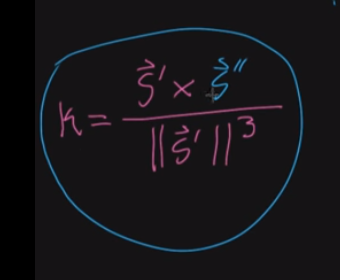 κ = (s⃗′ × s⃗″) / ||s⃗′||³